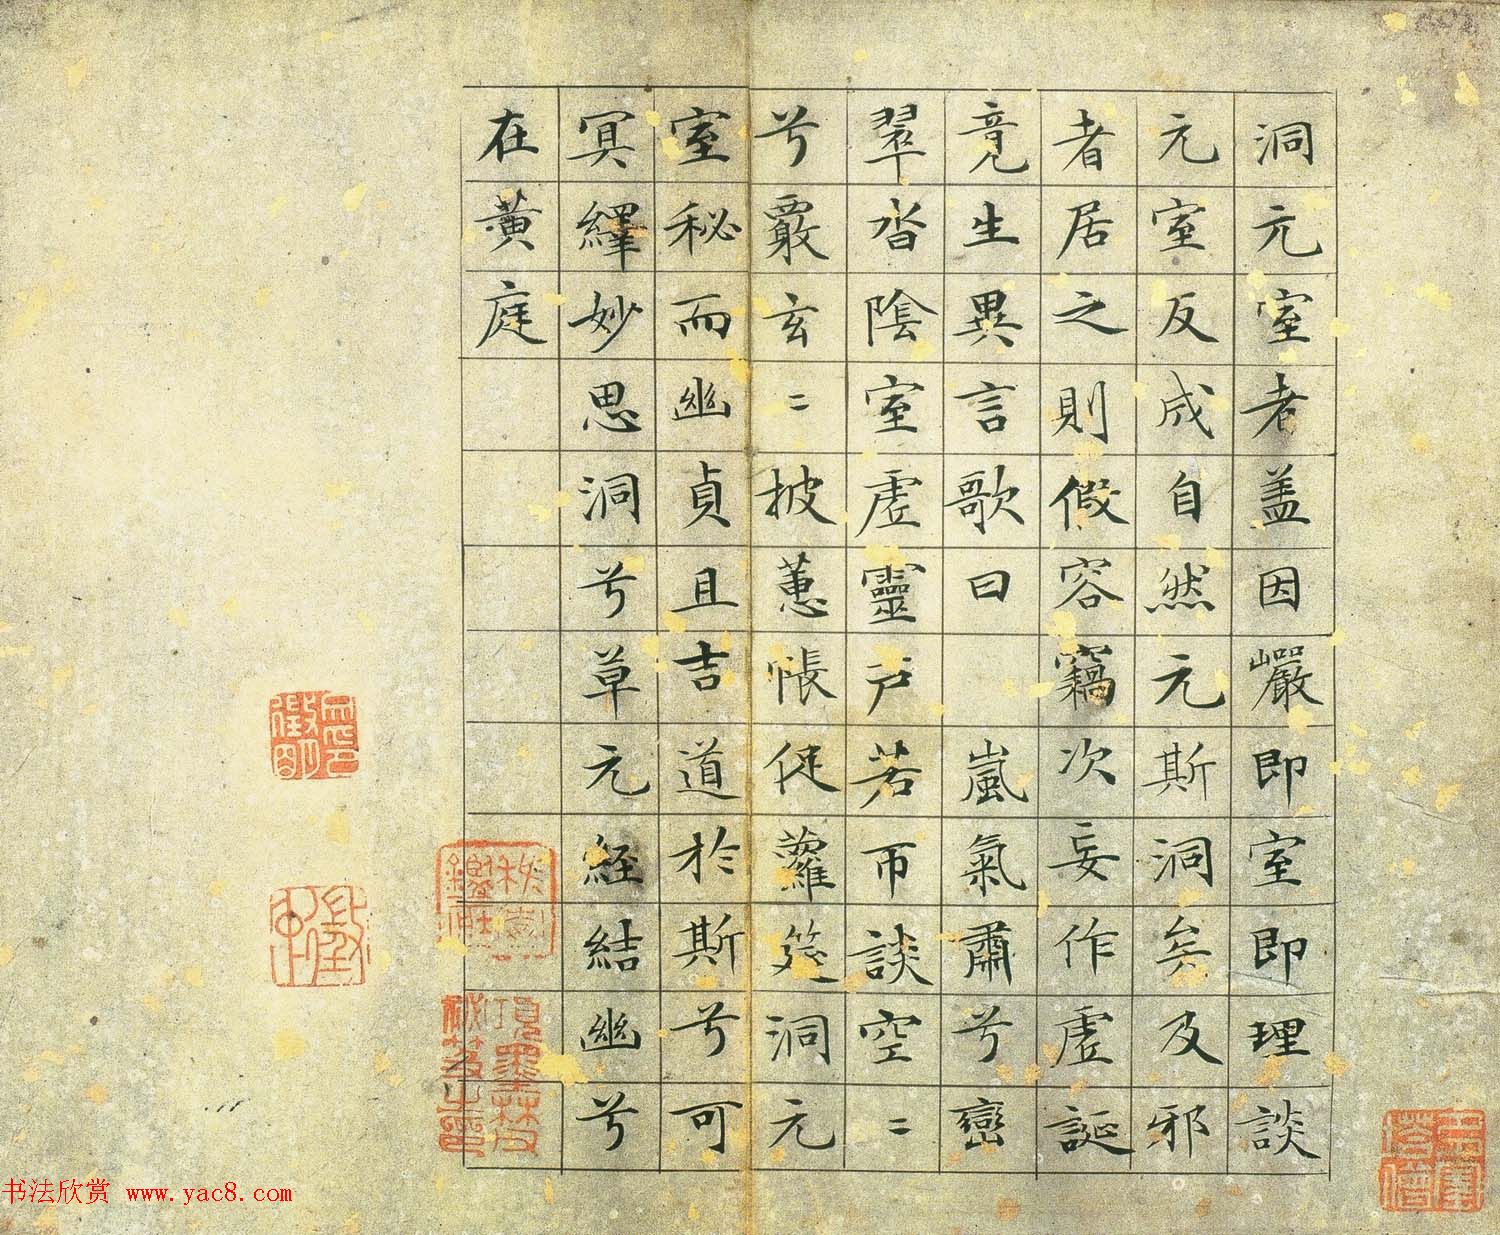 洞元室者盖因巖即室即理談
元室反成自然元斯洞矣及邪
者居之則假容竊次妄作虛誕
竞生異言歌曰 嵐氣肅兮巒
翠沓陰室虛靈戶若帀談空〻
兮覈玄〻披蕙帳促蘿筵洞元
室秘而幽貞且吉道於斯兮可
冥繹妙思洞兮草元經結幽兮
在黃庭
項墨林父
秘笈之印
书法欣赏 www.yac8.com